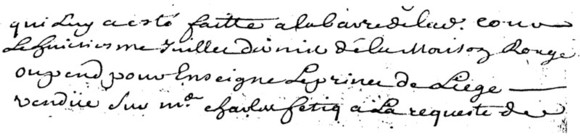 qui Luy a esté faitte a la barre de lad. cour
Le huictiesme Juillet dernier de la Maison Rouge
ou pend pour Enseigne Le prince de Liege
vendue Sur mᵉ charles fetiq a La requeste de